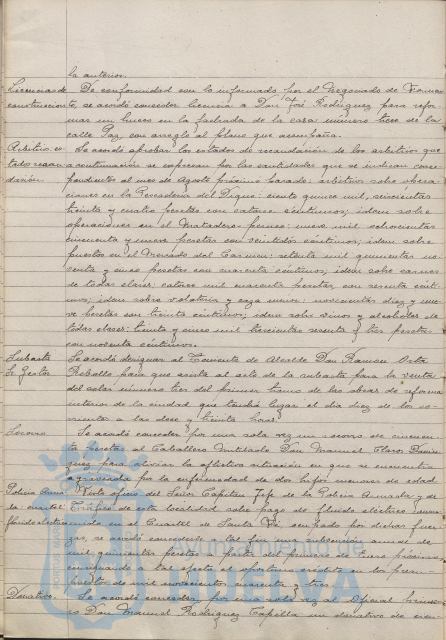 la anterior.
Licencias de De conformidad con lo informado por el Negociado de Fomen-
construcción to, se acordó conceder licencia a Don José Rodríguez para refor-
mar un hueco en la fachada de la casa número trece de la
calle Paz, con arreglo al plano que acompaña.
Se acordó aprobar los estados de recaudación de los arbitrios que
a continuación se expresan por las cantidades que se indican corres-
dación. pondientes al mes de Agosto próximo pasado: arbitrios sobre opera-
ciones en la Pescadería del Dique: ciento quince mil, seiscientas
treinta y cuatro pesetas con catorce céntimos; idem sobre
operaciones en el Matadero: nueve mil ochocientas
cincuenta y nueve pesetas con veintidós céntimos; idem sobre
puestos en el Mercado del Carmen: setenta mil quinientas no-
venta y cinco pesetas con cuarenta céntimos; idem sobre carnes
de todas clases: catorce mil cuarenta pesetas con sesenta cénti-
mos; idem sobre volatería y caza menor: novecientas diez y nue-
ve pesetas con treinta céntimos; idem sobre vinos y alcoholes de
todas clases: treinta y cinco mil trescientas sesenta y tres pesetas
con noventa céntimos.
Subasta Se acordó designar al Teniente de Alcalde Don Ramón
Rebollo para que asista al acto de la subasta para la venta
del solar número tres del primer tramo de las obras de reforma
interior de la ciudad que tendrá lugar el día diez de los co-
rrientes a las doce y treinta horas.
Socorro Se acordó conceder por una sola vez un socorro de cincuen-
ta pesetas al Caballero Mutilado Don Manuel
para aliviar la aflictiva situación en que se encuentra
agravada por la enfermedad de dos hijos menores de edad.
Policía Armada Visto oficio del Señor Capitán Jefe de la Policía Armada y de
Tráfico de esta localidad sobre pago de fluido eléctrico consu-
fluido eléctrico mido en el Cuartel de Santa Fé, ocupado por dichas fuer-
zas, se acordó concederle a tal fin una subvención anual de
mil quinientas pesetas a partir del primero de Enero próximo,
consignando a tal efecto el oportuno crédito en los presu-
puestos de mil novecientos cuarenta y tres.
Donativo. Se acordó conceder por una sola vez al Oficial
Don Manuel Rodríguez un donativo de cien-